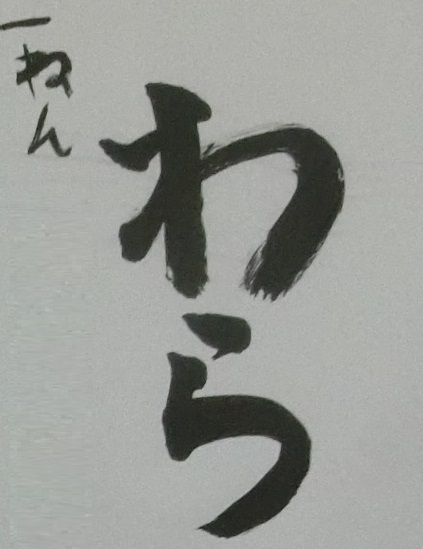 わら
一ねん